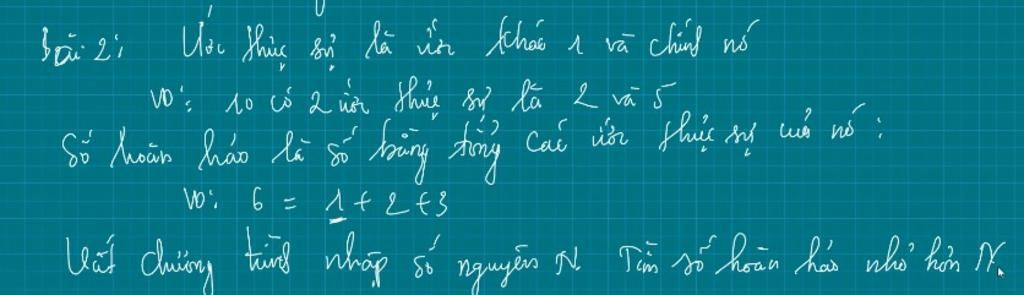 Bài 2: Ước thực sự là ước khác 1 và chính nó
VD: 10 có 2 ước thực sự là 2 và 5
Số hoàn hảo là số bằng tổng các ước thực sự của nó:
VD: 6 = 1 + 2 + 3
Viết chương trình nhập số nguyên N. Tìm số hoàn hảo nhỏ hơn N.